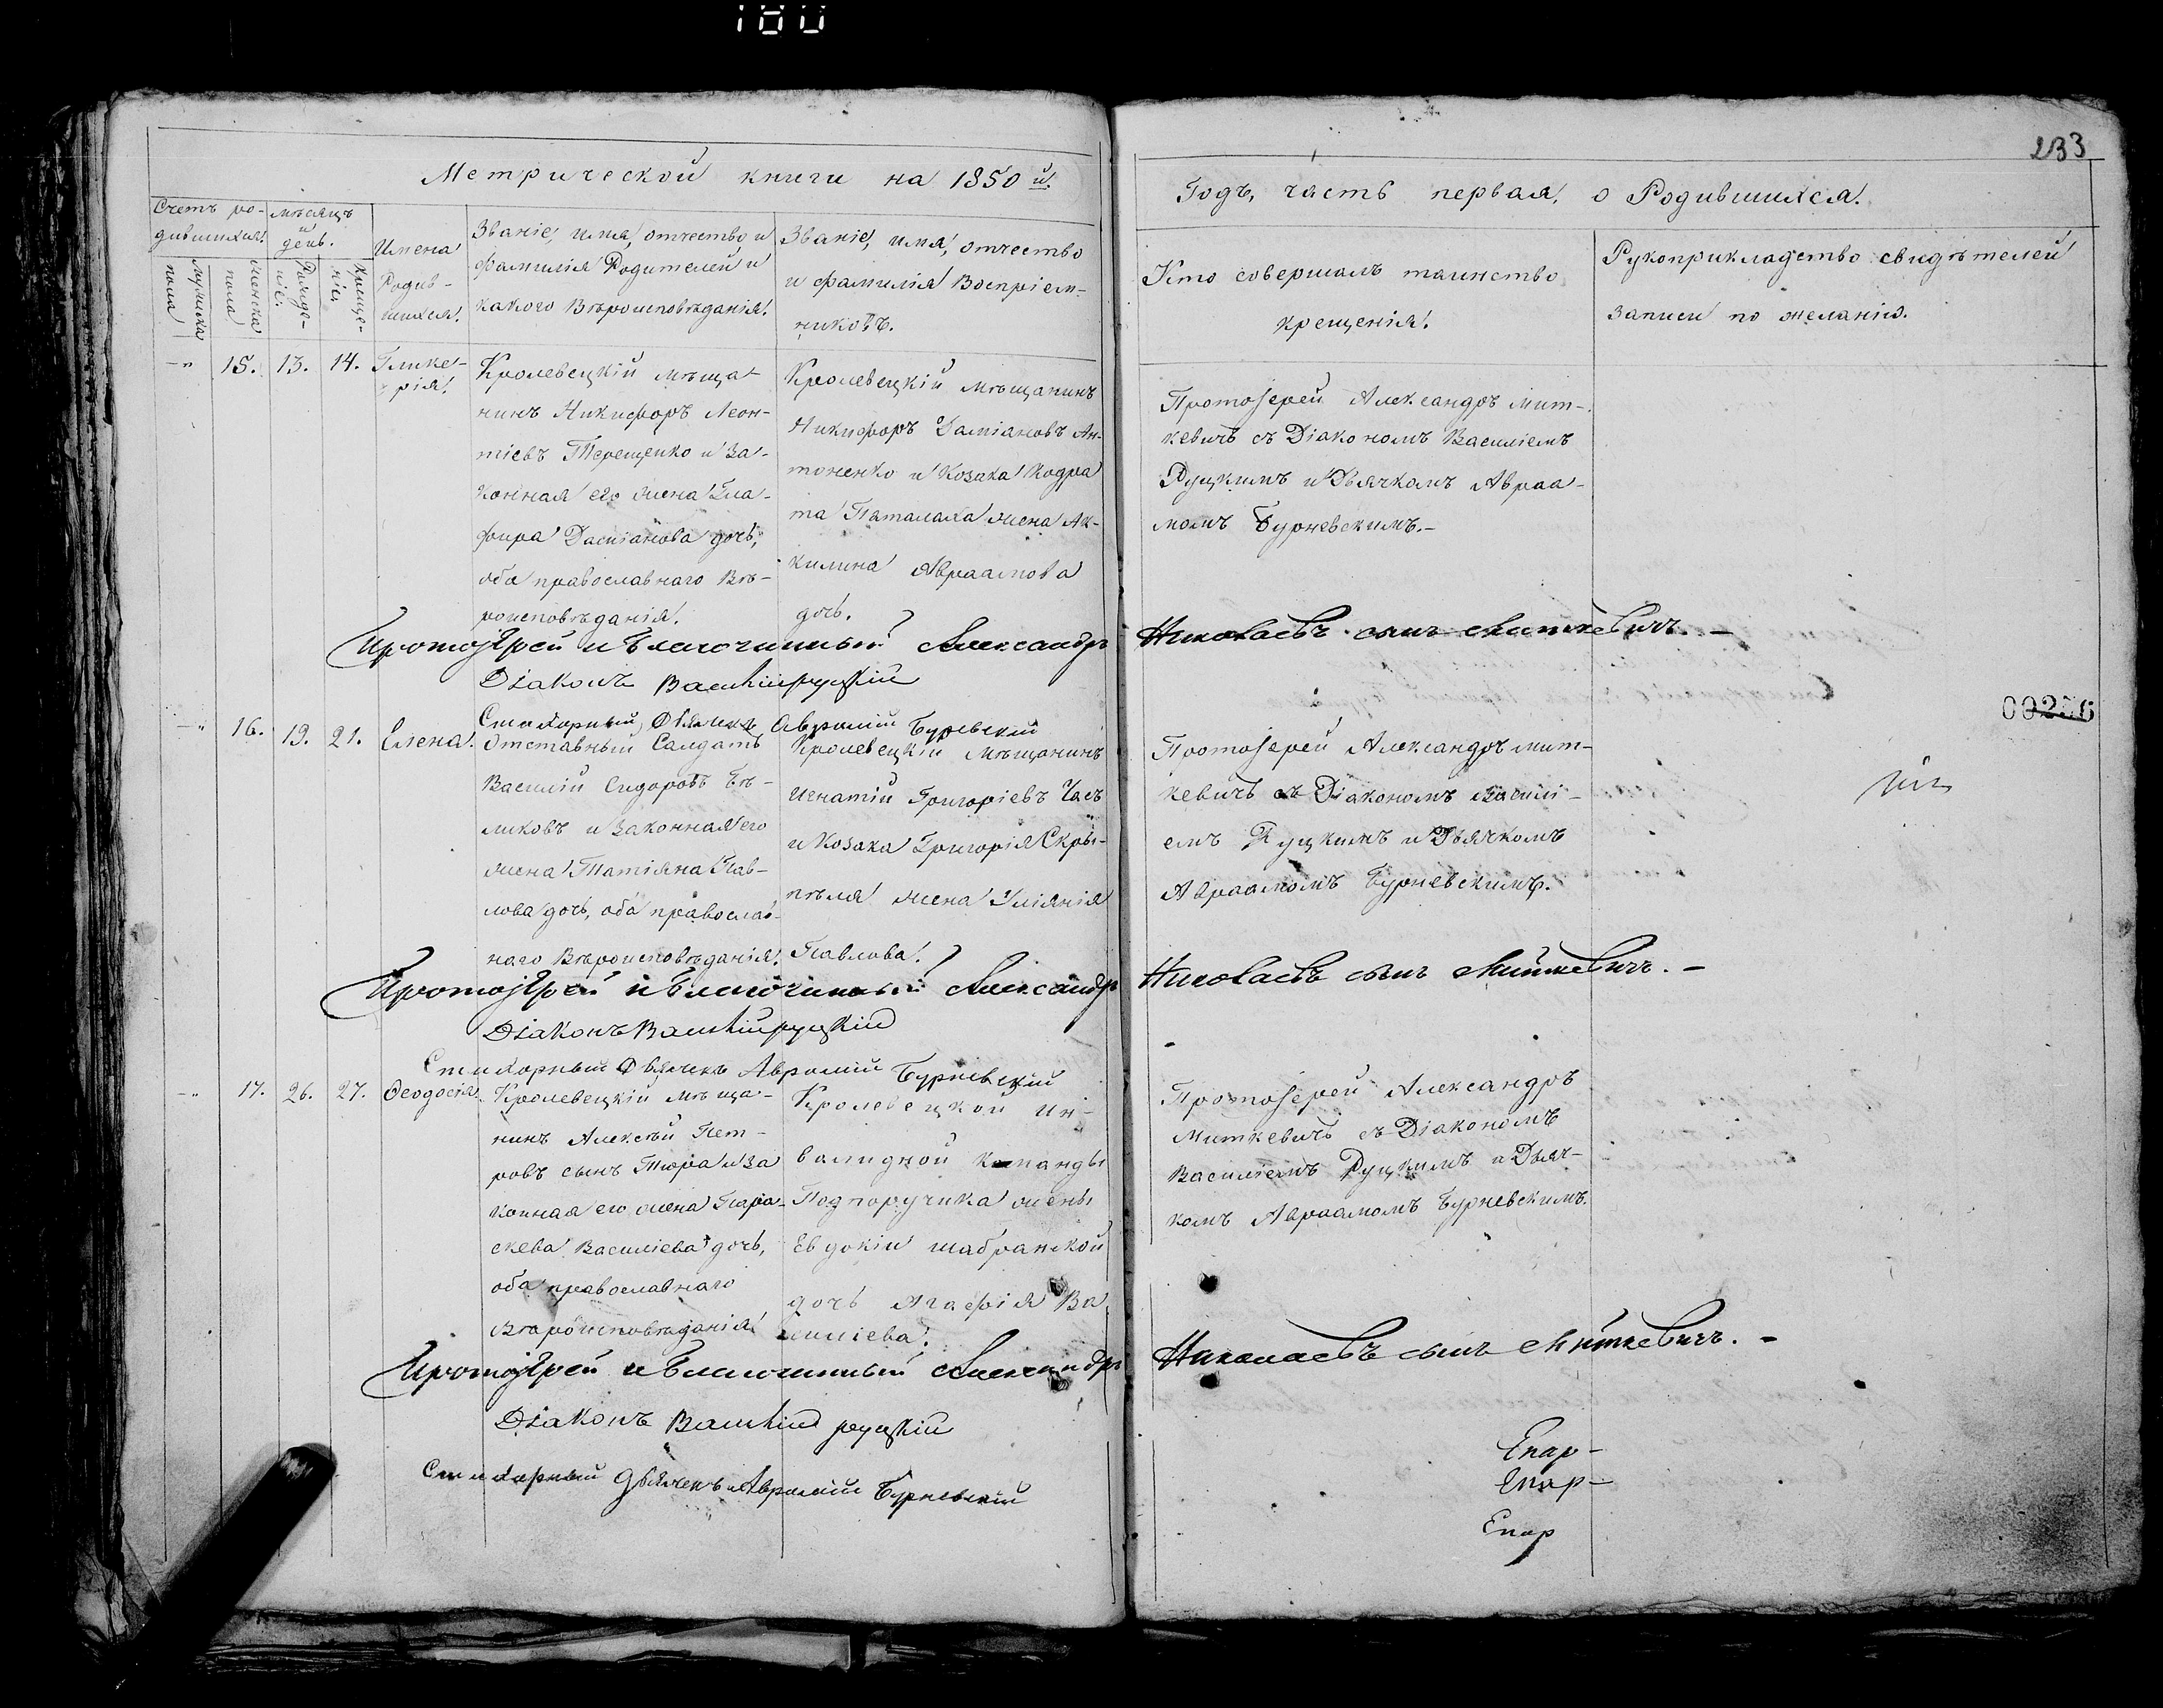 180
233
Метрической книги на 1850 й.
Годъ, часть первая, о Родившихся.
Счетъ ро-
дившихся.
мужска
пола
женска
пола
мѣсяцъ
и
день.
Рожде-
ніе.
Креще-
ніе.
Имена
Родив-
шихся.
Званіе, имя, отчество и
фамилія Родителей и
какого Вѣроисповѣданія.
Званіе, имя, отчество
и фамилія Воспріем-
никовъ.
Кто совершалъ таинство
крещенія.
Рукоприкладство свидѣтелей
записи по желанію.
15. 13. 14. Глике-
рія.
Кролевецкій мѣща-
нинъ Никифоръ Леон-
тіевъ Терещенко и за-
конная его жена Гла-
фира Даміанова дочь,
оба православнаго Вѣ-
роисповѣданія.
Кролевецкій мѣщанинъ
Никифоръ Даміановъ Ан-
тоненко и Козака Кодра
та Паталаха жена Ак-
килина Авраамова
дочь.
Протоіерей Александръ Мит-
кевичъ съ Діакономъ Василіемъ
Руцкимъ и Дьячкомъ Авраа-
момъ Бурневскимъ.-
Протоіерей и Благочинный Александръ Николаевъ сынъ Миткевичъ. -
Діаконъ Василій руцкій
Стихарный Дьячекъ Аврамій Бурневскій
16. 19. 21. Елена.
Отставный Салдатъ
Василій Сидоровъ Бѣ-
ликовъ и законная его
жена Татіяна Пав-
лова дочь, оба православ-
наго Вѣроисповѣданія.
Кролевецкій Мѣщанинъ
Игнатій Григоріевъ Часъ
и Козака Григорія Скры-
пѣля жена Уліянія
Павлова.
Протоіерей Александръ Мит-
кевичъ съ Діакономъ Васили-
емъ Руцкимъ и Дьячкомъ
Авраамомъ Бурневскимъ.
00236
Протоіерей и Благочинный Александръ Николаевъ сынъ Миткевичъ. -
Діаконъ Василій руцкій
Стихарный Дьячекъ Аврамій Бурневскій
17. 26. 27. Феодосія.
Кролевецкій мѣща-
нинъ Алексѣй Пет-
ровъ сынъ Тюра и за
конная его жена Пара-
скева Василіева дочь,
оба православнаго
Вѣроисповѣданія.
Кролевецкой ин-
валидной команды
Подпоручика жены
Евдокіи Шабранской
дочь Агафія Ва
силіева.
Протоіерей Александръ
Миткевичъ съ Діакономъ
Василіемъ Руцкимъ и Дьяч-
комъ Авраамомъ Бурневскимъ.
Протоіерей и Благочинный Александръ Николаевъ сынъ Миткевичъ. -
Діаконъ Василій руцкій
Стихарный Дьячекъ Аврамій Бурневскій
Епар-
Епар-
Епар